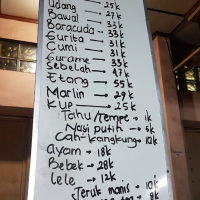 Udang → 25k
Bawal → 27k
Baracuda → 33k
Gurita → 33k
Cumi → 31k
Gurame → 33k
Sebelah → 47k
Etong → 55k
Marlin → 29k
Kup → 25k
Tahu/Tempe → 1k
Nasi putih → 5k
Cah-kangkung → 10k
ayam → 18k
Bebek → 28k
lele → 12k
Jeruk manis → 10k
8k